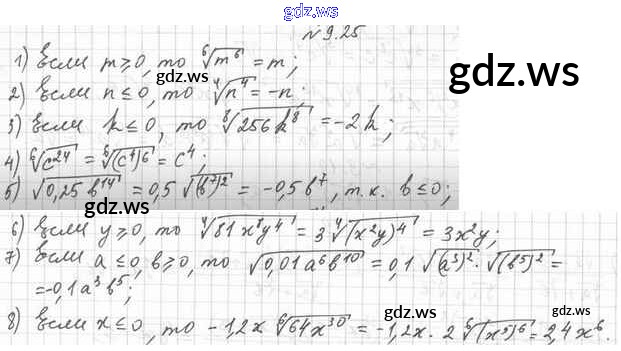 gdz.ws
№9.25
1) Если m≥0, то ⁶√m⁶ = m;
gdz.ws
gdz.ws
2) Если n≤0, то ⁴√n⁴ = -n;
3) Если k≤0, то ⁸√256k⁸ = -2k;
4) ⁶√c²⁴ = ⁶√(c⁴)⁶ = c⁴;
5) √0,25b¹⁴ = 0,5√(b⁷)² = -0,5b⁷, т.к. b≤0;
gdz.ws
6) Если y≥0, то ⁴√81x⁸y⁴ = 3 ⁴√(x²y)⁴ = 3x²y;
7) Если a≤0, b≥0, то √0,01a⁶b¹⁰ = 0,1√(a³)² · √(b⁵)² =
= -0,1a³b⁵;
gdz.ws
gdz.ws
8) Если x≤0, то -1,2x ⁶√64x³⁰ = -1,2x · 2 ⁶√(x⁵)⁶ = 2,4x⁶.